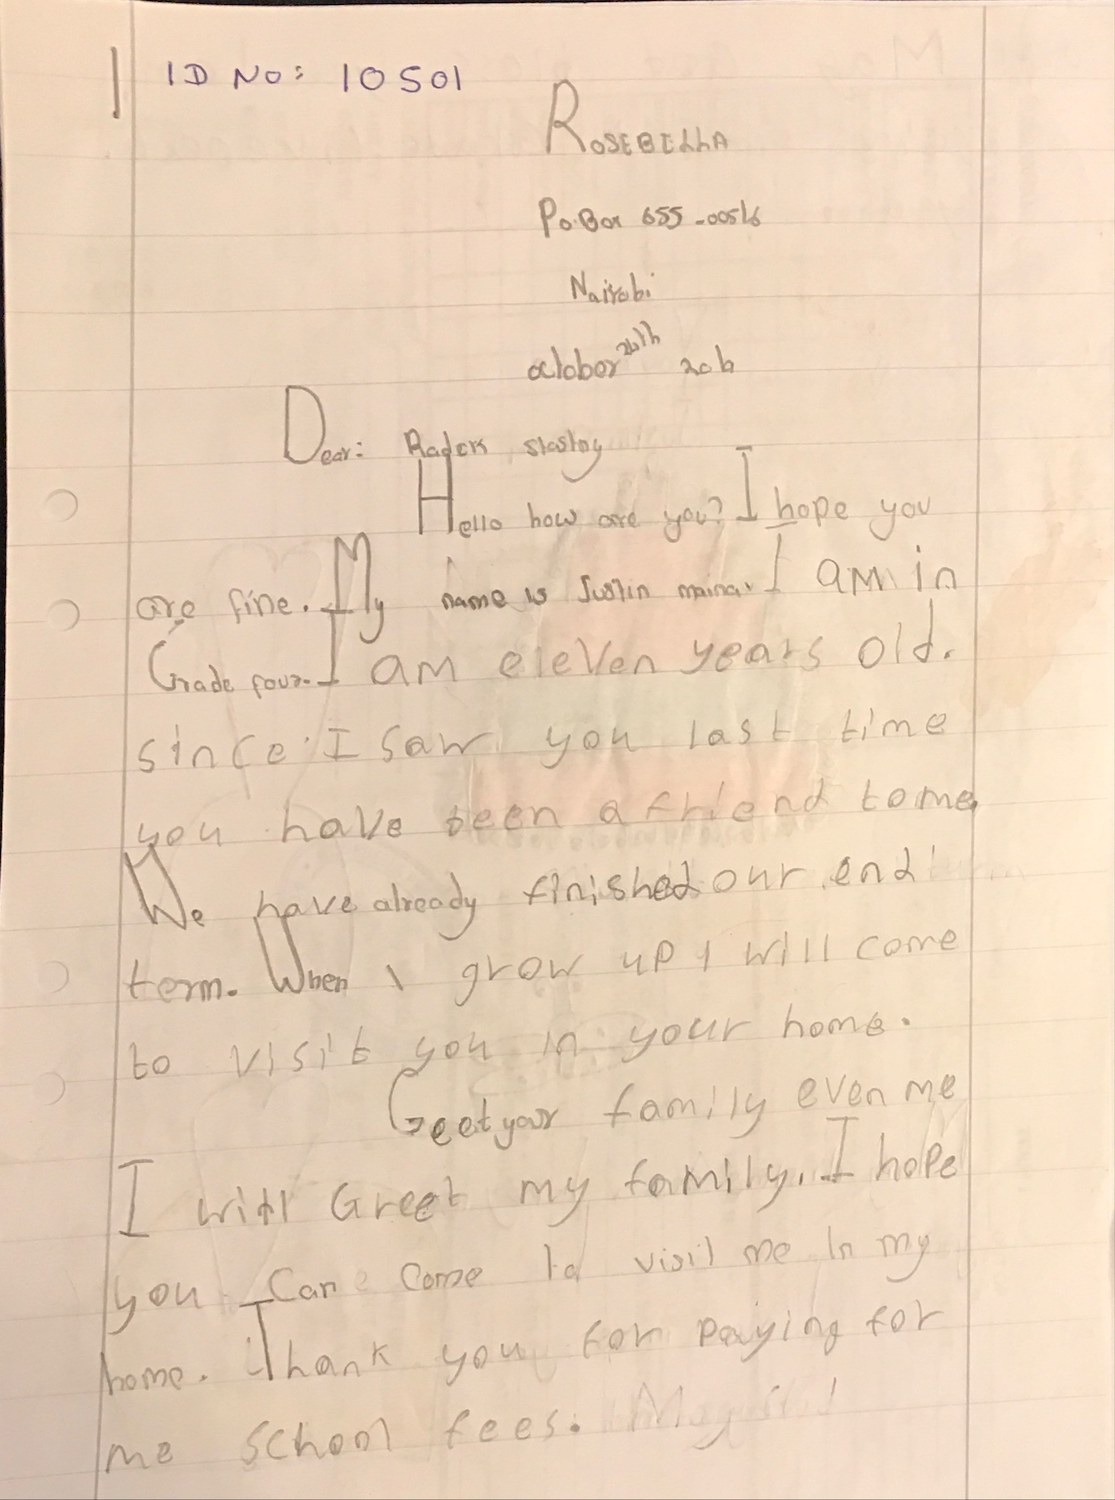 ID No: 10501
ROSEBELLA
Po.Box 655-00516
Nairobi
october 26th 2016
Dear:
Hello how are you? I hope you
are fine. My name is Justin maina. I am in
Grade four. I am eleven years old.
since I saw you last time
you have been a friend to me
We have already finished our end
term. When I grow up I will come
to visit you in your home.
Geet your family even me
I will Greet my family. I hope
you Can come to visit me in my
home. Thank you for paying for
me school fees.